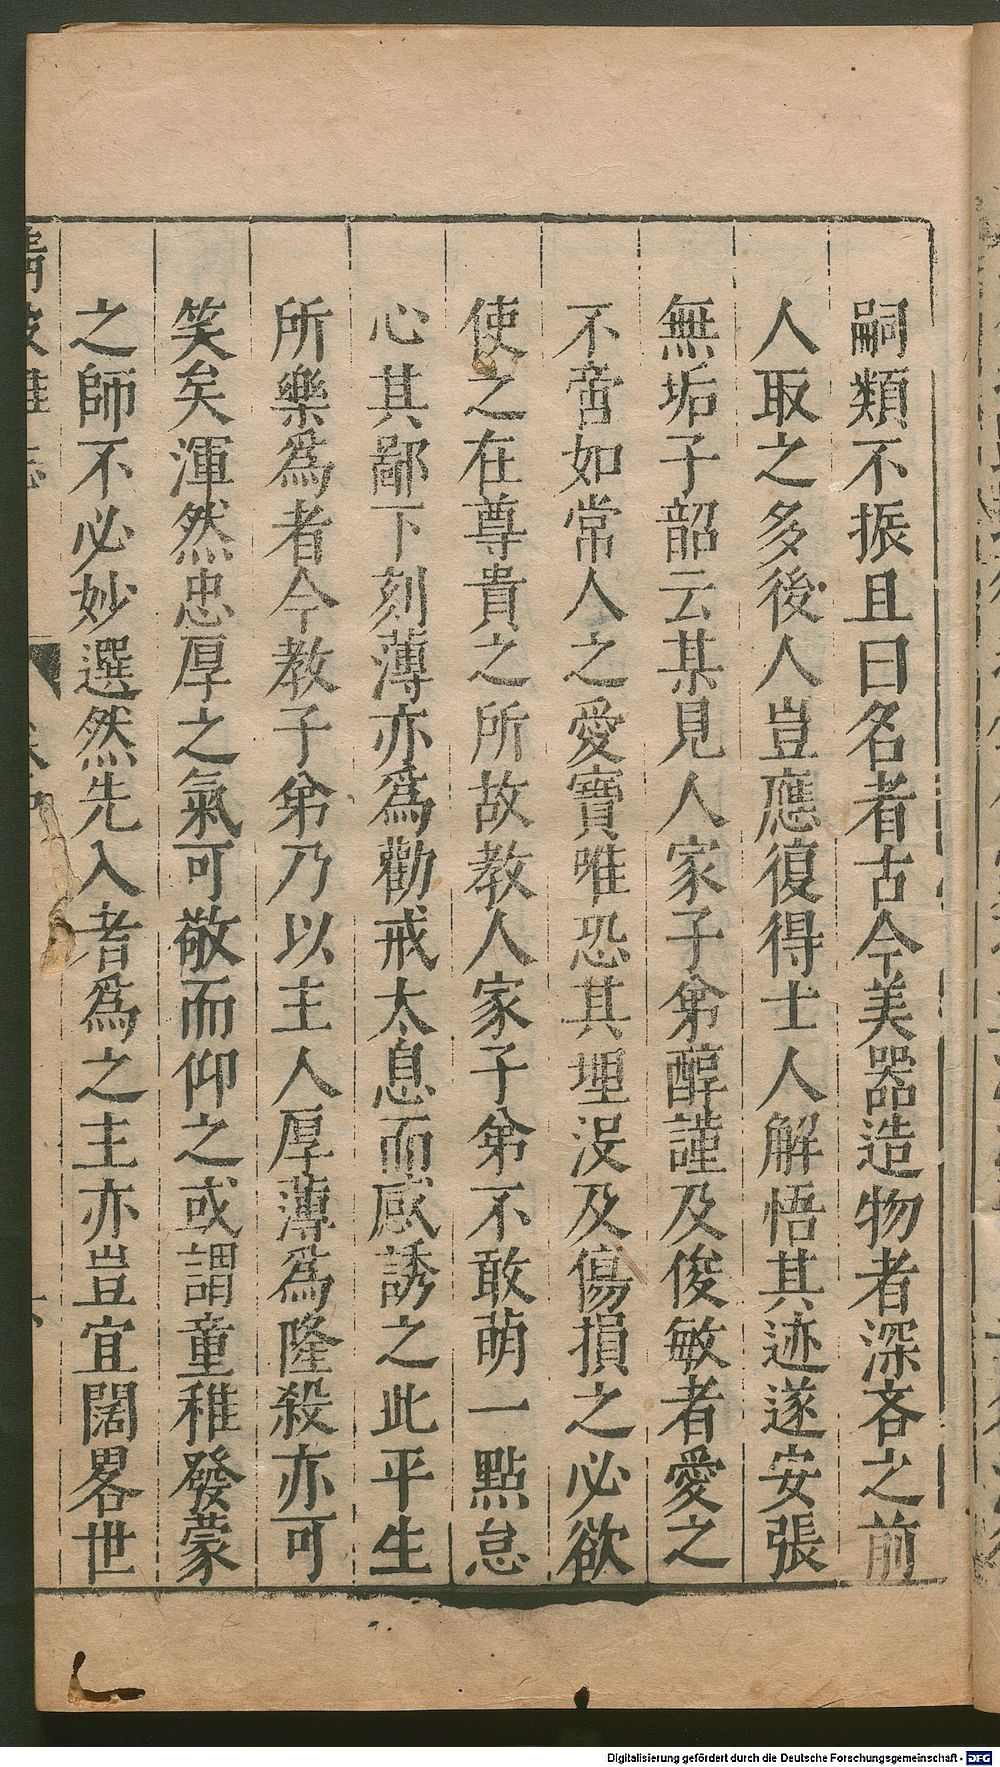 嗣類不振且曰名者古今美器造物者深吝之前
人取之多後人豈應復得士人解悟其迹遂安張
無垢子韶云某見人家子弟醇謹及俊敏者愛之
不啻如常人之愛寶唯恐其埋沒及傷損之必欲
使之在尊貴之所故教人家子弟不敢萌一點怠
心其鄙下刻薄亦爲勸戒太息而感誘之此平生
所樂爲者今教子弟乃以主人厚薄爲隆殺亦可
笑矣渾然忠厚之氣可敬而仰之或謂童稚發蒙
之師不必妙選然先入者爲之主亦豈宜闊畧世
Digitalisierung gefördert durch die Deutsche Forschungsgemeinschaft - DFG